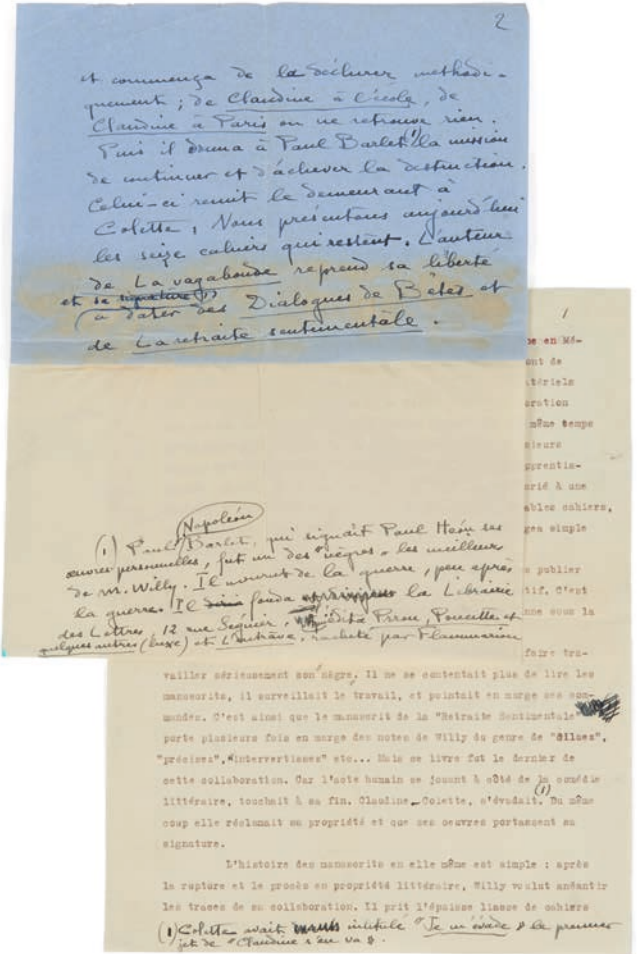 2
et commença de la déchirer méthodi-
quement ; de Claudine à l'école, de
Claudine à Paris on ne retrouve rien.
Puis il donna à Paul Barlet (1) la mission
de continuer et d'achever la destruction.
Celui-ci remit le demeurant à
Colette. Nous présentons aujourd'hui
les seize cahiers qui restent. L'auteur
de La vagabonde reprend sa liberté
et sa signature
à dater des Dialogues de Bêtes et
de La retraite sentimentale.
Napoléon
(1) Paul Barlet, qui signait Paul Héon ses
œuvres personnelles, fut un des "nègres" les meilleurs
de M. Willy. Il mourut de la guerre, peu après
la guerre. Il fonda la Librairie
des Lettres, 12 rue Séguier, édita Prrou, Poucette et
quelques autres (luxe) et L'entrave, racheté par Flammarion
1
en Mé-
ont de
tériels
oration
même temps
sieurs
pprentis-
orié à une
ables cahiers,
simple
publier
tif. C'est
sous la
faire tra-
vailler sérieusement son nègre. Il ne se contentait plus de lire les
manuscrits, il surveillait le travail, et pointait en marge ses com-
mandes. C'est ainsi que le manuscrit de la "Retraite Sentimentale"
porte plusieurs fois en marge des notes de Willy du genre de "dilues",
"précises", "intervertisses" etc... Mais ce livre fut le dernier de
cette collaboration. Car l'acte humain se jouant à côté de la comédie
littéraire, touchait à sa fin. Claudine-Colette, s'évadait. (1) Du même
coup elle réclamait sa propriété et que ses oeuvres portassent sa
signature.
L'histoire des manuscrits en elle même est simple : après
la rupture et le procès en propriété littéraire, Willy voulut anéantir
les traces de sa collaboration. Il prit l'épaisse liasse de cahiers
(1) Colette avait intitulé "Je m'évade" le premier
jet de "Claudine s'en va".